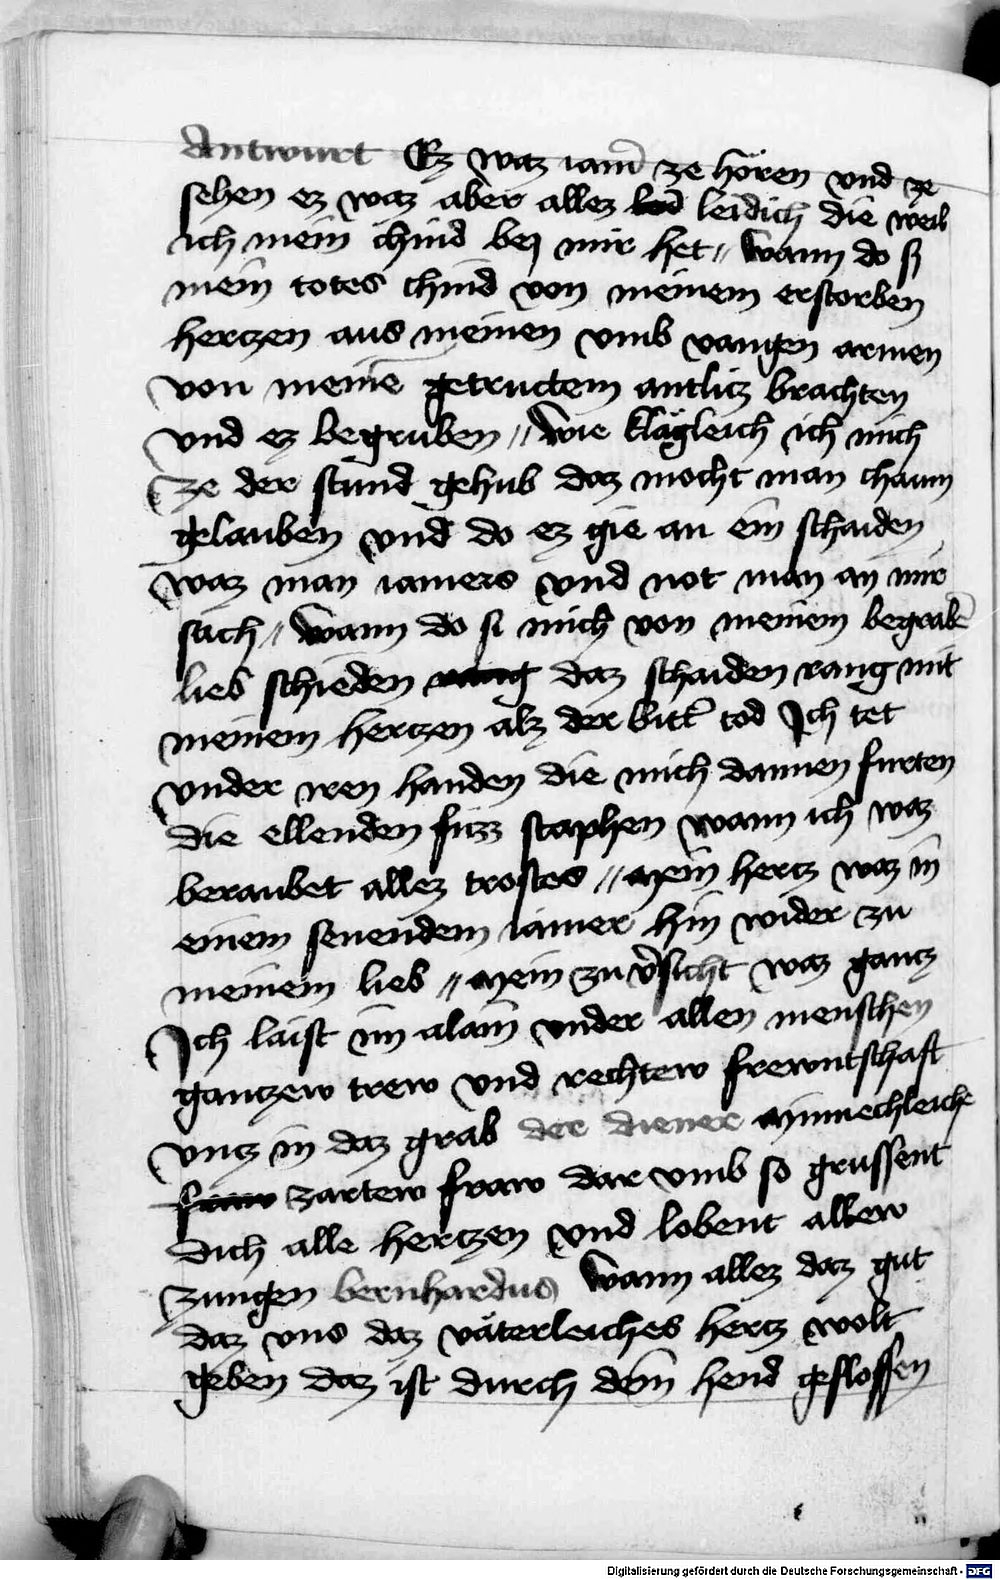 Antwurt Ez waz iam̄ ze hören vnd ze
sehen ez waz aber allez leidich die weil
ich mein chind bey mir het // wann do si
mein totes chind von meinem erstorben
hertzen aus meinen vmb vangen armen
von meinē getrucktem antlitz brachten
vnd ez begruben // wie klägleich ich mich
ze der stund gehub daz mocht man chaum
gelauben vnd do ez gie an ein schaiden
waz man iamers vnd not man an mir
sach // wann do si mich von meinem begrabē
lieb schieden daz schaiden rang mit
meinem hertzen alz der bitt̄ tod Ich tet
vnder iren handen die mich dannen furten
die ellenden fuzz staphen wann ich waz
beraubet allez trostes // Mein hertz waz in
einem senendem iamer hin wider zu
meinem lieb // Mein zu v̄sicht waz gantz
Ich laist im alain vnder allen menschen
gantzew trew vnd rechtew frewntschaft
vntz in daz grab der diener Minnechleiche
zartew fraw dar vmb so grussent
dich alle hertzen vnd lobent allew
zungen bernhardus Wann allez daz gut
daz vns daz väterleiches hertz wolt
geben daz ist durch dein hend geflossen
Digitalisierung gefördert durch die Deutsche Forschungsgemeinschaft - DFG